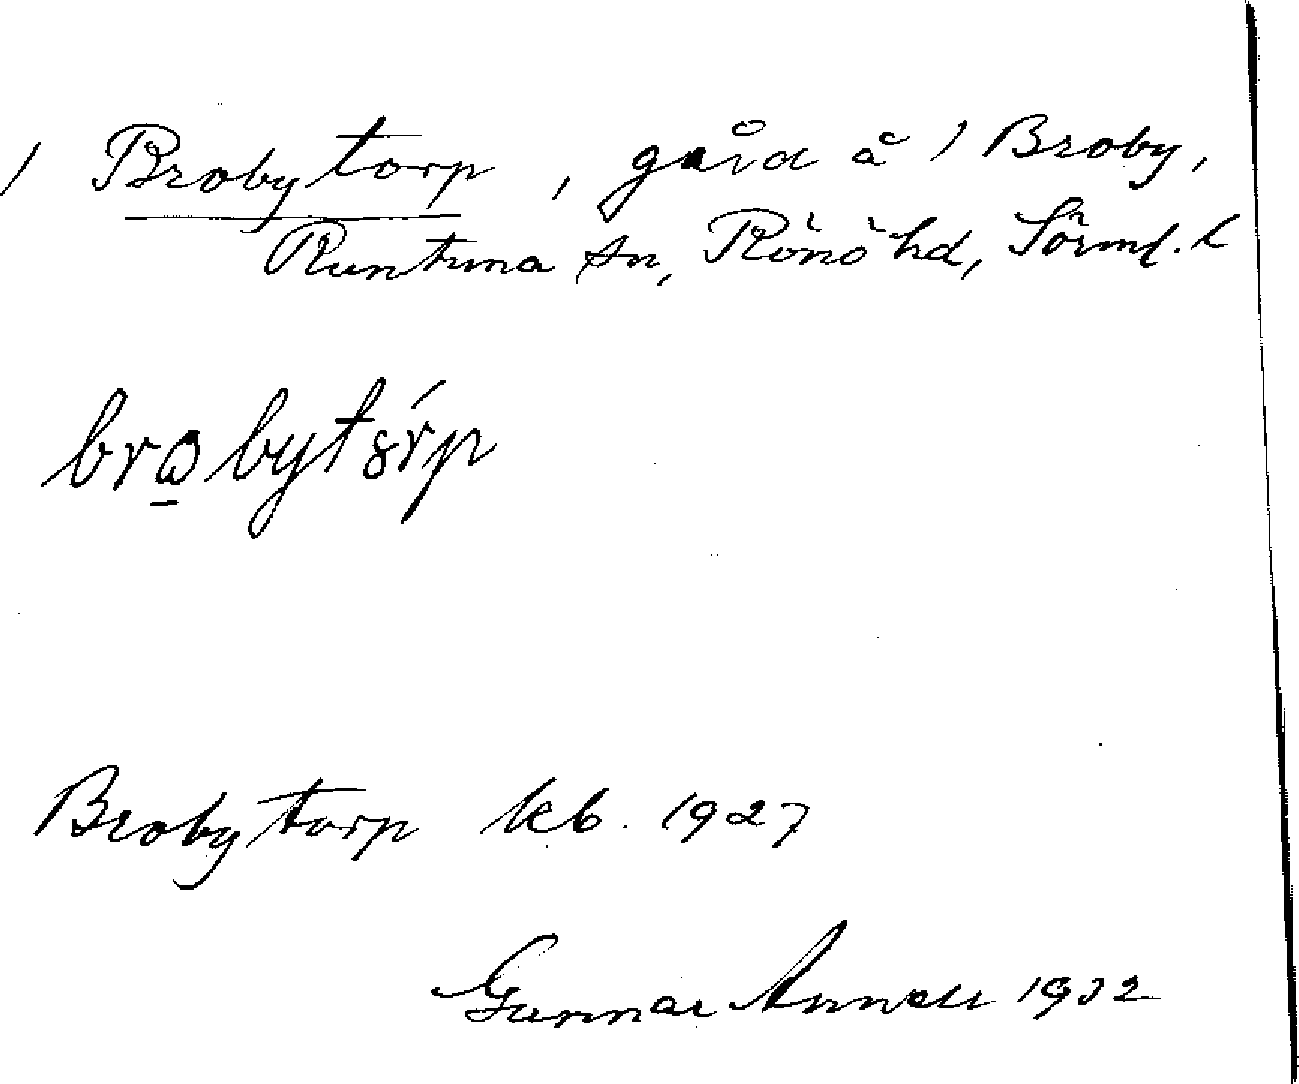 1 Brobytorp, gård å 1 Broby,
Runtuna sn, Rönö hd, Sörml. l
brωbytórp
Brobytorp kb. 1927
Gunnar Annell 1932